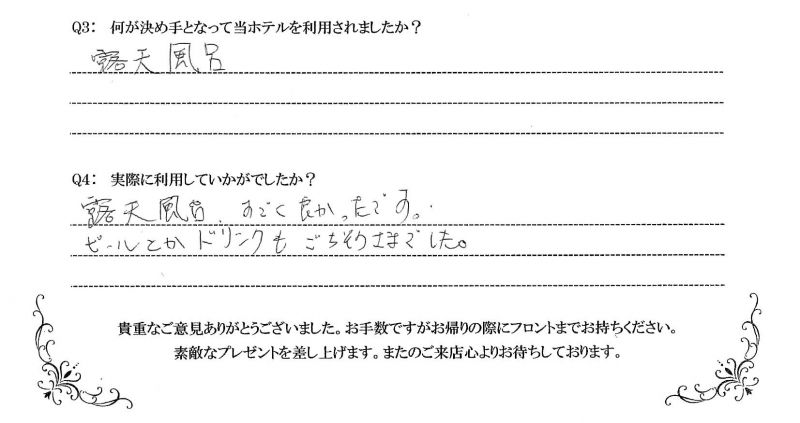 Q3： 何が決め手となって当ホテルを利用されましたか？
露天風呂
Q4： 実際に利用していかがでしたか？
露天風呂、すごく良かったです。
ビールとかドリンクもごちそうさまでした。
貴重なご意見ありがとうございました。お手数ですがお帰りの際にフロントまでお持ちください。
素敵なプレゼントを差し上げます。またのご来店心よりお待ちしております。